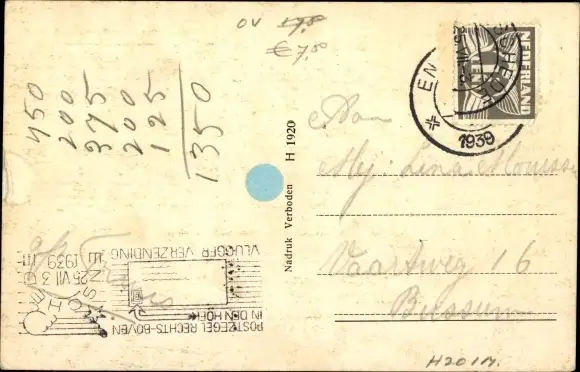 OV 17,50
€ 7,50
450
200
375
200
125
1350
ENSCHEDE
1939
NEDERLAND
1
CENT
Aan
Mej. Lina
Vaartweg 16
Bussum
Nadruk Verboden H 1920
POSTZEGEL RECHTS-BOVEN
IN DEN HOEK
VLUGGER VERZENDING
25 VII 3
1939
H201M.